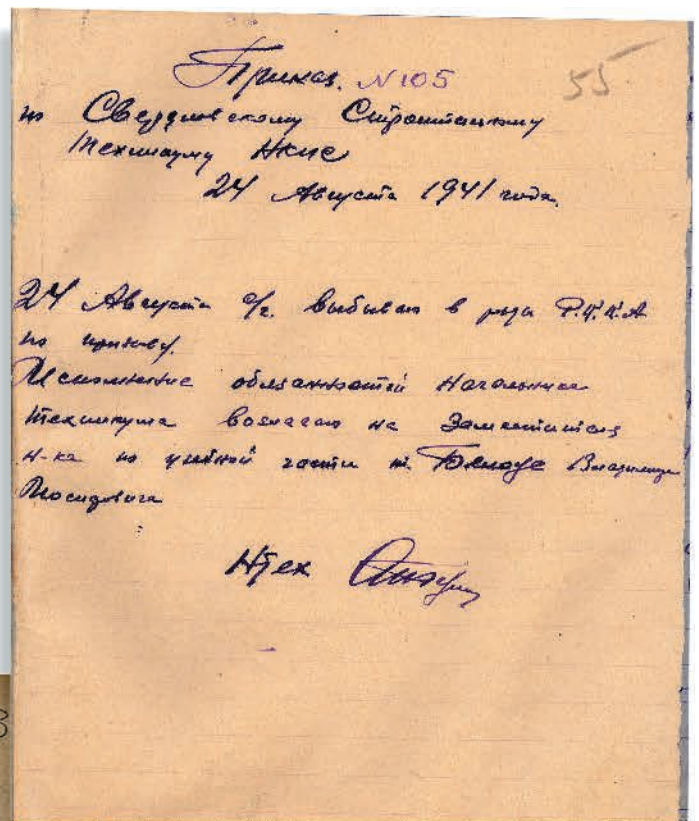 Приказ. N 105
55
по Свердловскому
Техникуму НКПС
24 Августа 1941 года.
24 Августа с/г. выбываю в ряды Р.К.К.А
по призыву.
Исполнение обязанностей Начальника
Техникума возлагаю на Заместителя
Н-ка по учебной части т. Владимира
Иосифовича